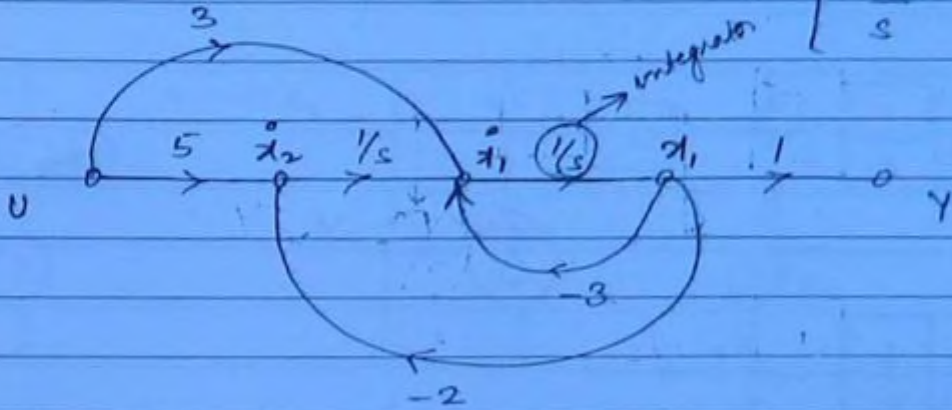 3
s
integrator
5 ẋ₂ 1/s ẋ₁ 1/s x₁ 1
U Y
-3
-2